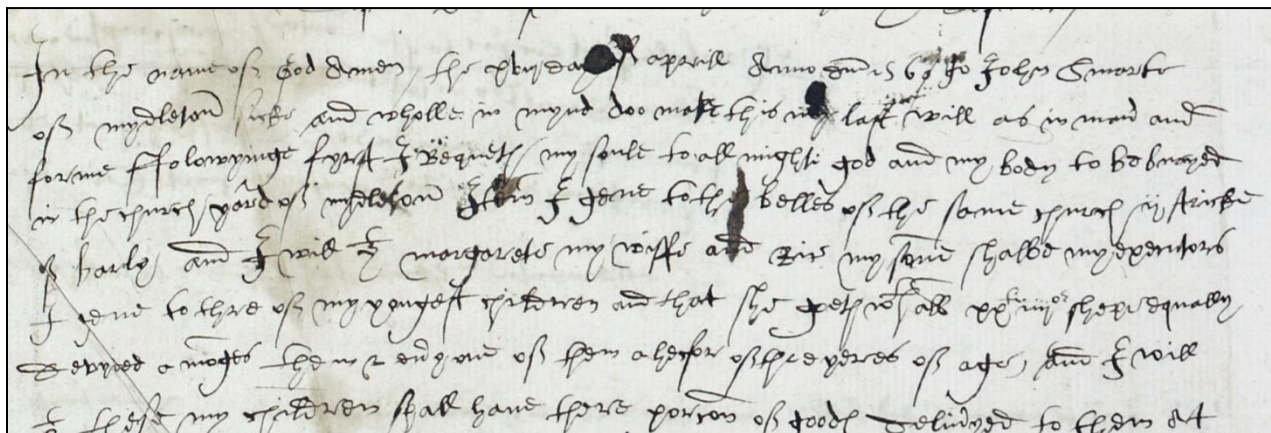 In the name of God Amen the xviij day of aprill Anno dni 1569 I John Smarte
of mydleton sicke and wholle in mynd doo make this my last will as in man and
forme ffolowynge fyrst I Bequeth my soule to all mighti god and my body to be buryed
in the church yard of mydleton Itm I geve to the belles of the same church ij stricke
of barly and I will yt margarete my wiffe and Ric my sone shalbe my exeutors
I geve to thre of my yongest children and that she geth wt all xx iiij or shepe equally
devyded amonges them & evy one of them a hecfor of thre yeres of age, and I will
yt these my children shall have there porcon of goods delivyed to them at